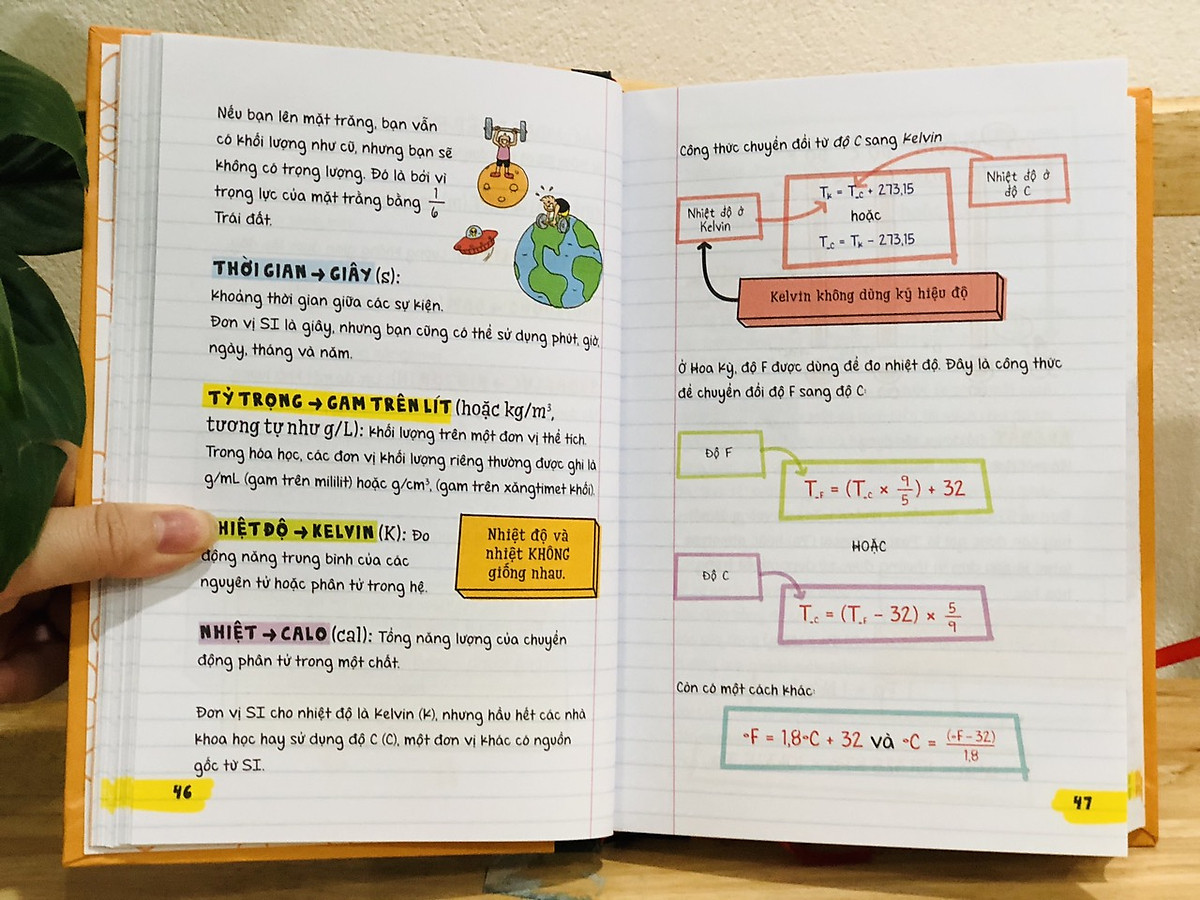 Nếu bạn lên mặt trăng, bạn vẫn
có khối lượng như cũ, nhưng bạn sẽ
không có trọng lượng. Đó là bởi vì
trọng lực của mặt trăng bằng 1/6
Trái đất.
THỜI GIAN → GIÂY (s):
Khoảng thời gian giữa các sự kiện.
Đơn vị SI là giây, nhưng bạn cũng có thể sử dụng phút, giờ,
ngày, tháng và năm.
TỶ TRỌNG → GAM TRÊN LÍT (hoặc kg/m³,
tương tự như g/L): Khối lượng trên một đơn vị thể tích.
Trong hóa học, các đơn vị khối lượng riêng thường được ghi là
g/mL (gam trên mililit) hoặc g/cm³, (gam trên xăngtimet khối).
HIỆT ĐỘ → KELVIN (K): Đo
động năng trung bình của các
nguyên tử hoặc phân tử trong hệ.
Nhiệt độ và
nhiệt KHÔNG
giống nhau.
NHIỆT → CALO (cal): Tổng năng lượng của chuyển
động phân tử trong một chất.
Đơn vị SI cho nhiệt độ là Kelvin (K), nhưng hầu hết các nhà
khoa học hay sử dụng độ C (C), một đơn vị khác có nguồn
gốc từ SI.
46
Công thức chuyển đổi từ độ C sang Kelvin
Nhiệt độ ở
độ C
Nhiệt độ ở
Kelvin
Tₖ = T°C + 273,15
hoặc
T°C = Tₖ − 273,15
Kelvin không dùng ký hiệu độ
Ở Hoa Kỳ, độ F được dùng để đo nhiệt độ. Đây là công thức
để chuyển đổi độ F sang độ C:
Độ F
T°F = (T°C × 9/5) + 32
HOẶC
Độ C
T°C = (T°F − 32) × 5/9
Còn có một cách khác:
°F = 1,8°C + 32 và °C = (°F−32)/1,8
47